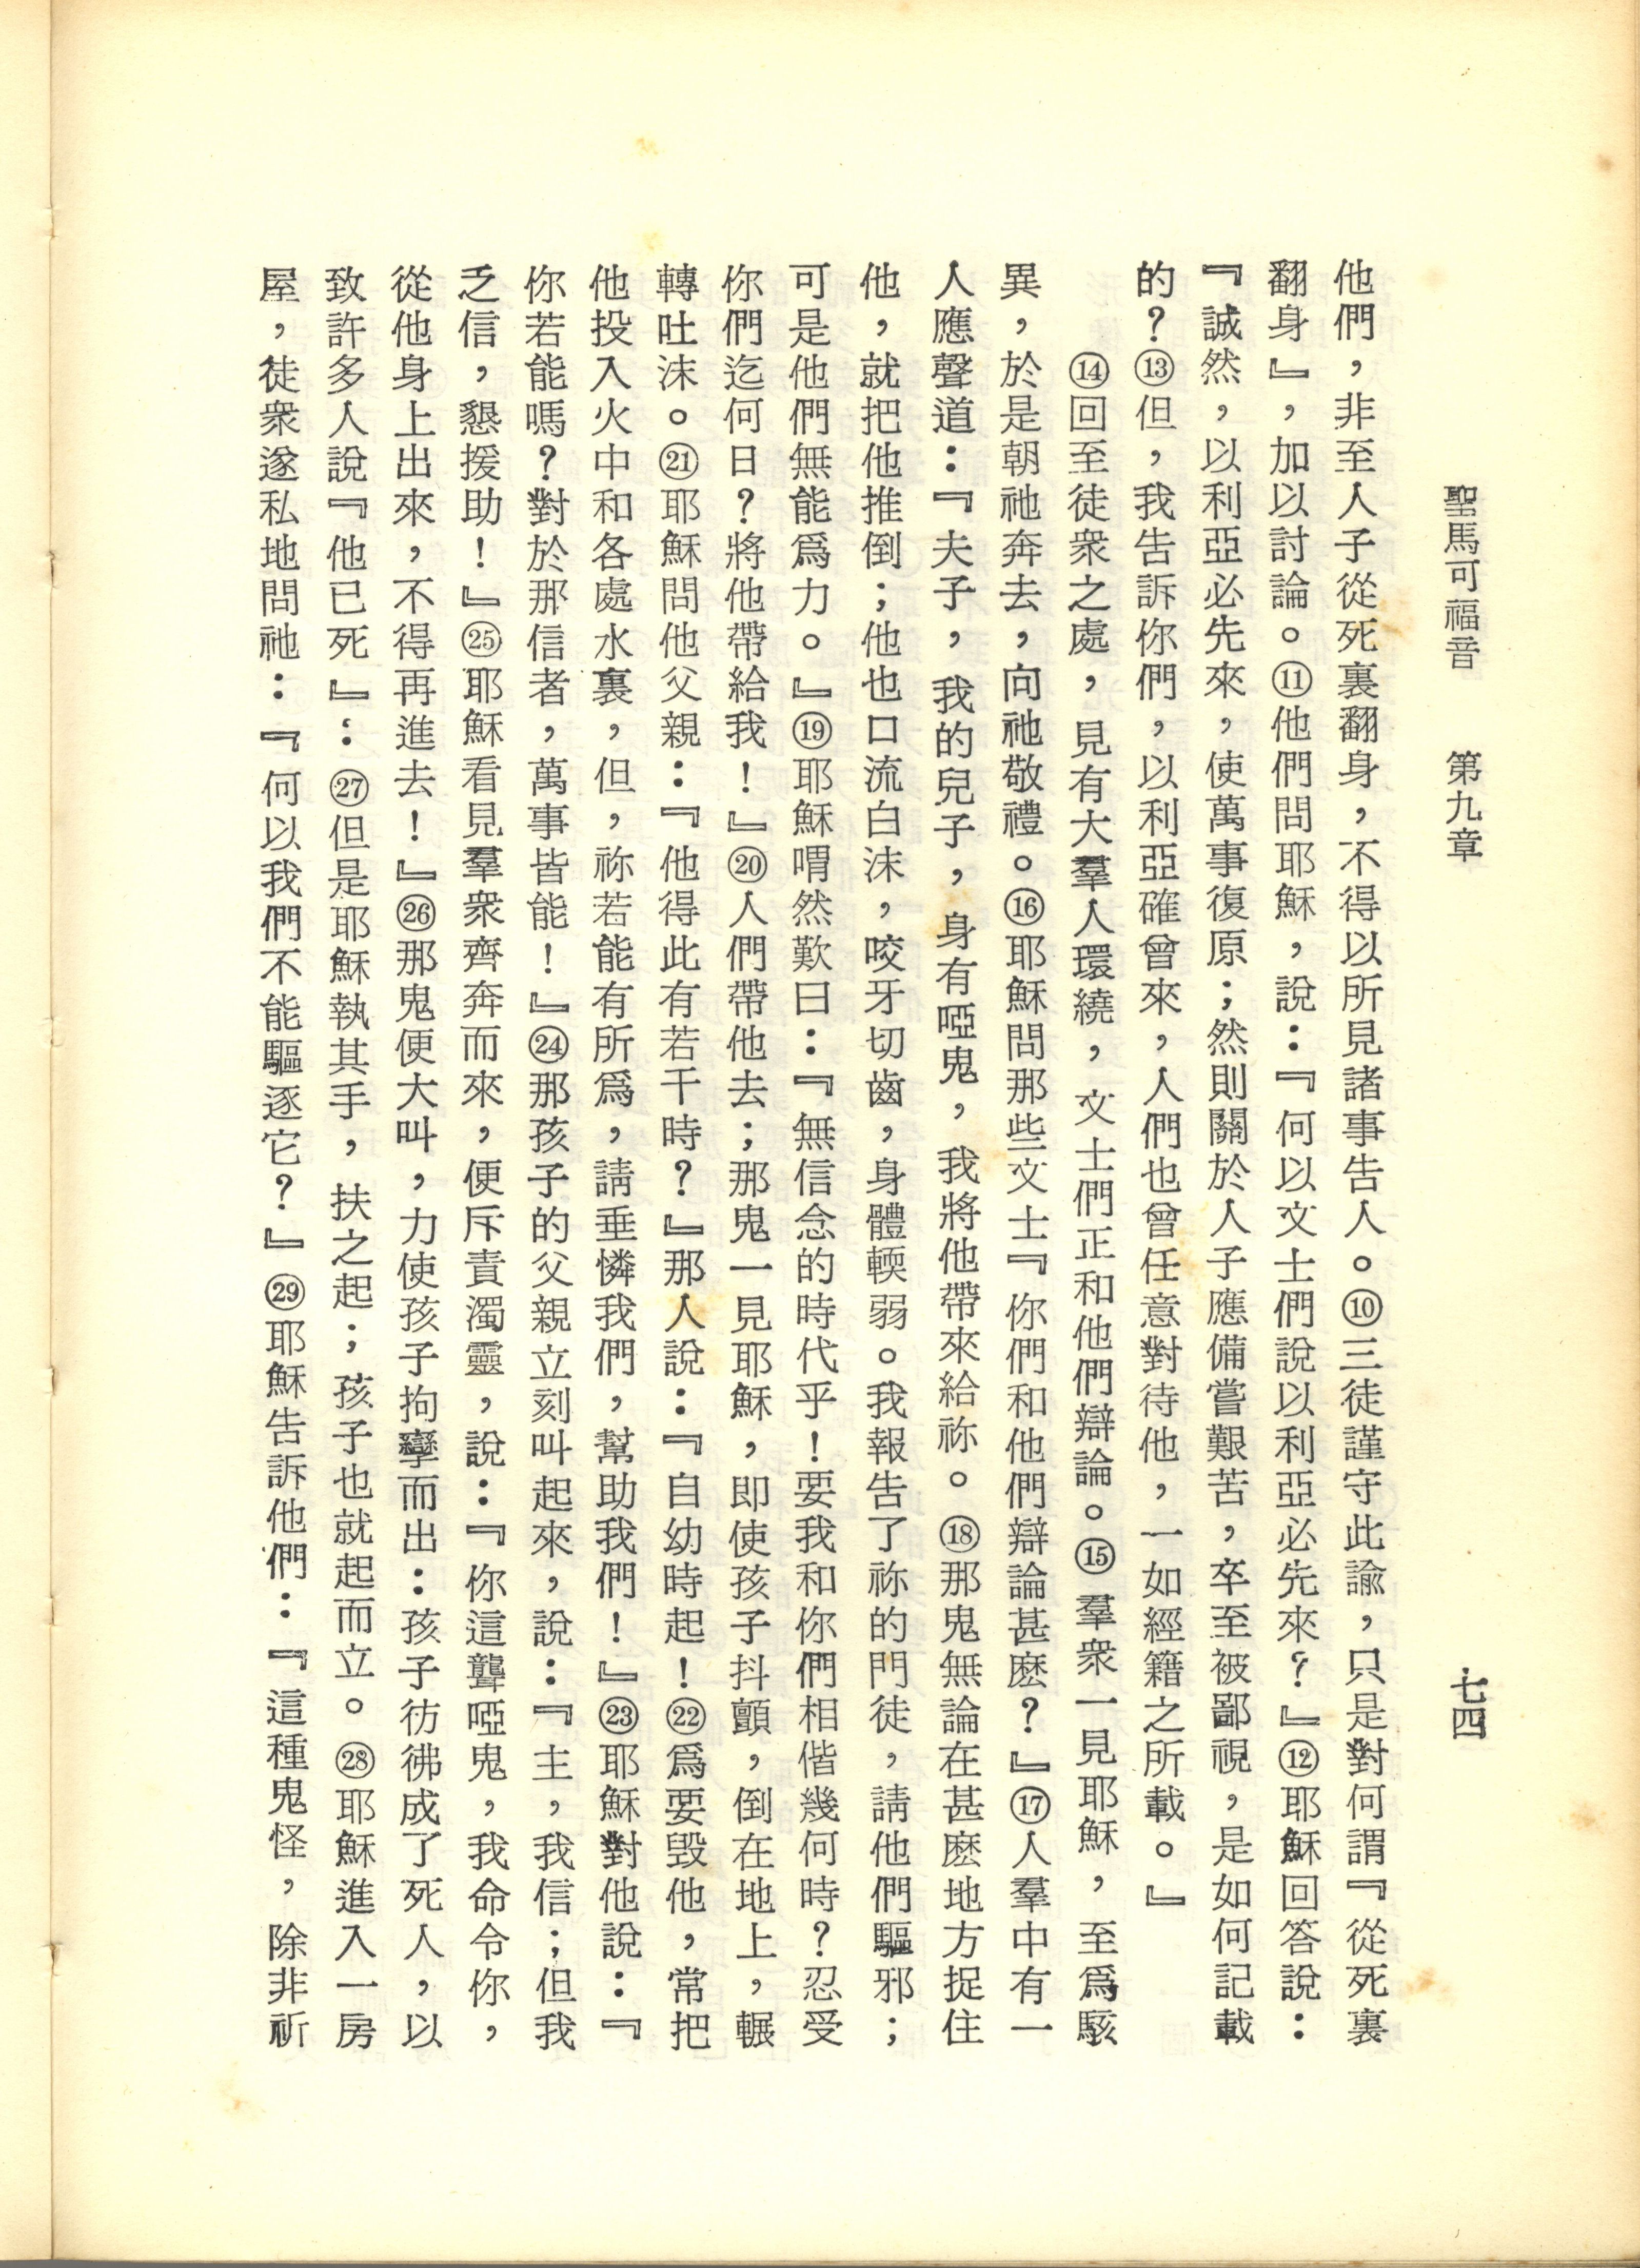 聖馬可福音　第九章　七四
他們，非至人子從死裏翻身，不得以所見諸事告人。⑩三徒謹守此諭，只是對何謂『從死裏
翻身』，加以討論。⑪他們問耶穌，說：『何以文士們說以利亞必先來？』⑫耶穌回答說：
『誠然，以利亞必先來，使萬事復原；然則關於人子應備嘗艱苦，卒至被鄙視，是如何記載
的？⑬但，我告訴你們，以利亞確曾來，人們也曾任意對待他，一如經籍之所載。』
⑭回至徒衆之處，見有大羣人環繞，文士們正和他們辯論。⑮羣衆一見耶穌，至爲駭
異，於是朝祂奔去，向祂敬禮。⑯耶穌問那些文士『你們和他們辯論甚麽？』⑰人羣中有一
人應聲道：『夫子，我的兒子，身有啞鬼，我將他帶來給祢。⑱那鬼無論在甚麽地方捉住
他，就把他推倒；他也口流白沫，咬牙切齒，身體輭弱。我報吿了祢的門徒，請他們驅邪；
可是他們無能爲力。』⑲耶穌喟然歎曰：『無信念的時代乎！要我和你們相偕幾何時？忍受
你們迄何日？將他帶給我！』⑳人們帶他去；那鬼一見耶穌，即使孩子抖顫，倒在地上，輾
轉吐沫。㉑耶穌問他父親：『他得此有若干時？』那人說：『自幼時起！㉒爲要毀他，常把
他投入火中和各處水裏，但，祢若能有所爲，請垂憐我們，幫助我們！』㉓耶穌對他說：『
你若能嗎？對於那信者，萬事皆能！』㉔那孩子的父親立刻叫起來，說：『主，我信；但我
乏信，懇援助！』㉕耶穌看見羣衆齊奔而來，便斥責濁靈，說：『你這聾啞鬼，我命令你，
從他身上出來，不得再進去！』㉖那鬼便大叫，力使孩子拘攣而出：孩子彷彿成了死人，以
致許多人說『他已死』：㉗但是耶穌執其手，扶之起；孩子也就起而立。㉘耶穌進入一房
屋，徒衆遂私地問祂：『何以我們不能驅逐它？』㉙耶穌告訴他們：『這種鬼怪，除非祈